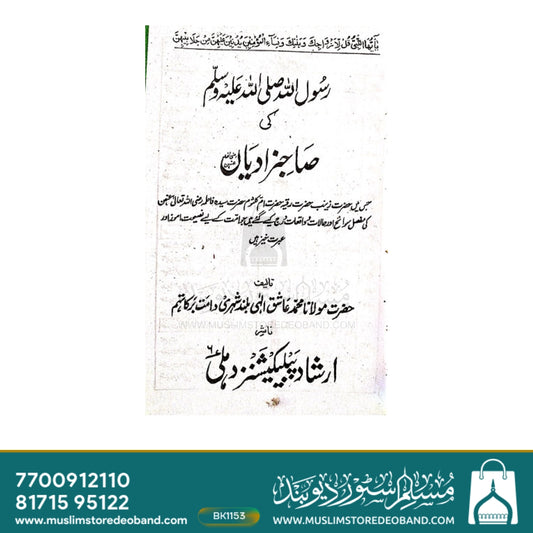 یٰۤاَیُّهَا النَّبِیُّ قُلْ لِّاَزْوَاجِكَ وَبَنٰتِكَ وَنِسَآءِ الْمُؤْمِنِیْنَ یُدْنِیْنَ عَلَیْهِنَّ مِنْ جَلَابِیْبِهِنَّ
رسول اللہ صلی اللہ علیہ وسلم
کی
صاحبزادیاں
جس میں حضرت زینب حضرت رقیہ حضرت ام کلثوم حضرت سیدہ فاطمہ رضی اللہ تعالیٰ عنہن
کی مفصل سوانح اور حالات و واقعات درج کیے گئے ہیں جو امت کے لیے نصیحت آموز اور
عبرت خیز ہیں
تالیف
حضرت مولانا محمد عاشق الٰہی بلند شہری دامت برکاتہم
WWW.MUSLIMSTOREDEOBAND.COM
ناشر
ارشاد پبلیکیشنز دہلی ۶
7700912110
81715 95122
www.muslimstoredeoband.com
BK1153
مسلم اسٹور دیوبند
WWW.MUSLIMSTOREDEOBAND.COM